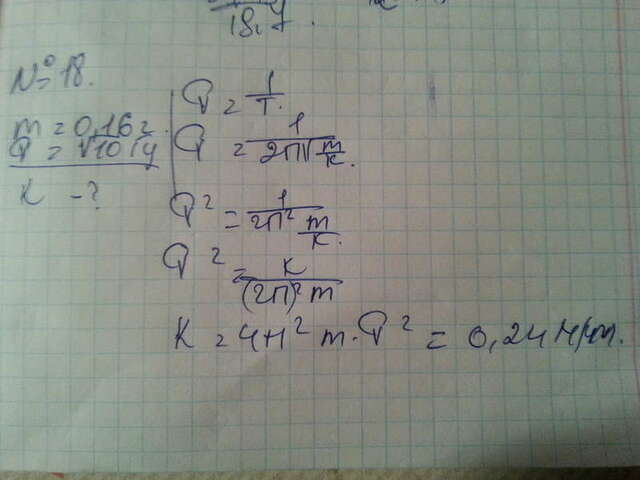 18,7.
№18.
m = 0,16г.
ϑ = √10 Гц
K - ?
ϑ = 1/T.
ϑ = 1/2π√m/K.
ϑ² = 1/2π² m/K.
ϑ² = K/(2π)² m
K = 4π² m·ϑ² = 0,24 Н/m.